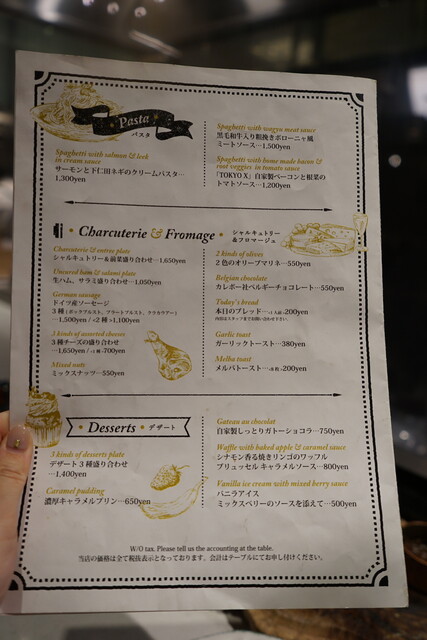 Pasta
パスタ
Spaghetti with salmon & leek
in cream sauce
サーモンと下仁田ネギのクリームパスタ…
1,300yen
Spaghetti with wagyu meat sauce
黒毛和牛入り粗挽きボローニャ風
ミートソース…1,500yen
Spaghetti with home made bacon &
root veggies in tomato sauce
「TOKYO X」自家製ベーコンと根菜の
トマトソース…1,200yen
Charcuterie & Fromage
シャルキュトリー
&フロマージュ
Charcuterie & entree plate
シャルキュトリー&前菜盛り合わせ…1,650yen
Uncured ham & salami plate
生ハム、サラミ盛り合わせ…1,050yen
German sausage
ドイツ産ソーセージ
3種(ボックブルスト、ブラートブルスト、クラカウアー)
…1,500yen / +2種+1,100yen
3 kinds of assorted cheeses
3種チーズの盛り合わせ
…1,650yen / +1種+700yen
Mixed nuts
ミックスナッツ…550yen
2 kinds of olives
2色のオリーブマリネ…550yen
Belgian chocolate
カレボー社ベルギーチョコレート…550yen
Today's bread
本日のブレッド…1人前+200yen
内容はスタッフまでお問い合わせ下さい。
Garlic toast
ガーリックトースト…380yen
Melba toast
メルバトースト…200yen
Desserts
デザート
3 kinds of desserts plate
デザート3種盛り合わせ
…1,400yen
Caramel pudding
濃厚キャラメルプリン…650yen
Gateau au chocolat
自家製しっとりガトーショコラ…750yen
Waffle with baked apple & caramel sauce
シナモン香る焼きリンゴのワッフル
ブリュッセル キャラメルソース…800yen
Vanilla ice cream with mixed berry sauce
バニラアイス
ミックスベリーのソースを添えて…500yen
W/O tax. Please tell us the accounting at the table.
当店の価格は全て税抜表示となっております。会計はテーブルにてお申し付けください。